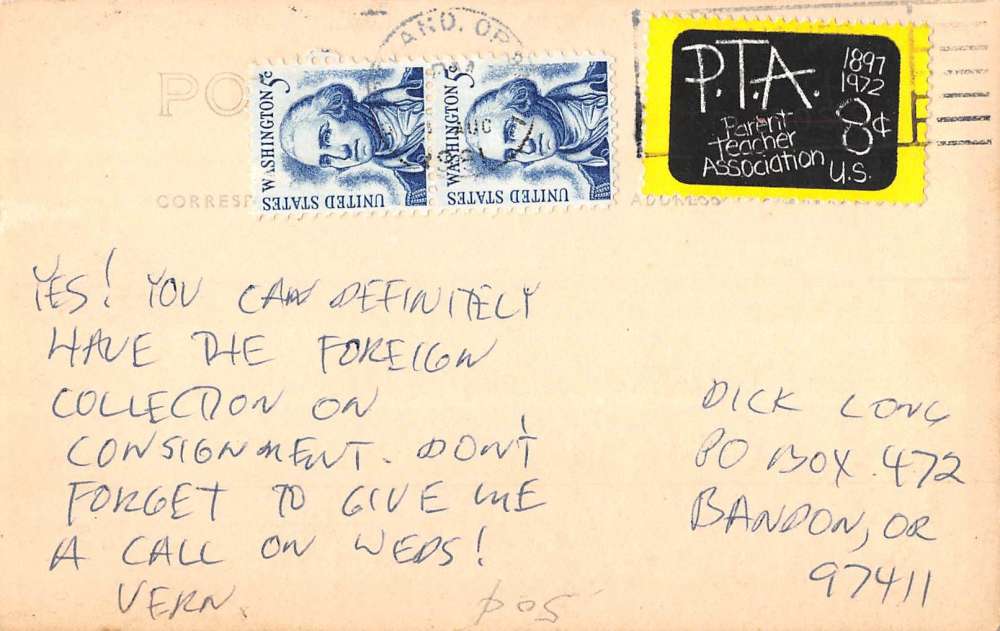 AND, OR
AUG
WASHINGTON 5¢
UNITED STATES
WASHINGTON 5¢
UNITED STATES
P.T.A.
1897
1972
Parent
teacher
Association
8¢
U.S.
PO
CORRESP
ADDRESS
YES! YOU CAN DEFINITELY
HAVE THE FOREIGN
COLLECTION ON
CONSIGNMENT. DON'T
FORGET TO GIVE ME
A CALL ON WEDS!
VERN
DICK LONG
PO BOX 472
BANDON, OR
97411